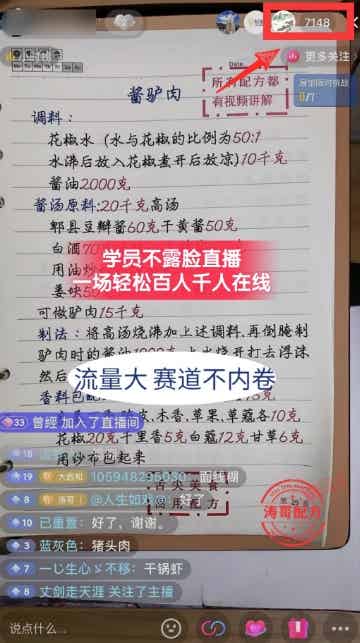 7148
更多关注
0/7
Date
所有配方都
有视频讲解
酱驴肉
调料：
花椒水（水与花椒的比例为50:1
水沸后放入花椒煮开后放凉)10千克
酱油2000克
酱汤原料:20千克高汤
郫县豆瓣酱60克干黄酱50克
白酒
用油炒
姜块
学员不露脸直播
一场轻松百人千人在线
可做驴肉15千克
制法：将高汤烧沸加上述调料.再倒腌制
驴肉时的酱油
上火烧开打去浮沫
然后
流量大 赛道不内卷
香料包
33 曾經 加入了直播间
皮、木香、草果、草蔻各10克
花椒20克千里香5克白蔻12克甘草6克
用纱布包起来
18
19
105948295080：面线糊
8
@人生如戏
：好了
10 已重置：好了，谢谢。
3 蓝灰色：猪头肉
7 一じ生心ゞ不移：干锅虾
8 丈剑走天涯 关注了主播
商用配方
涛哥配方
说点什么...